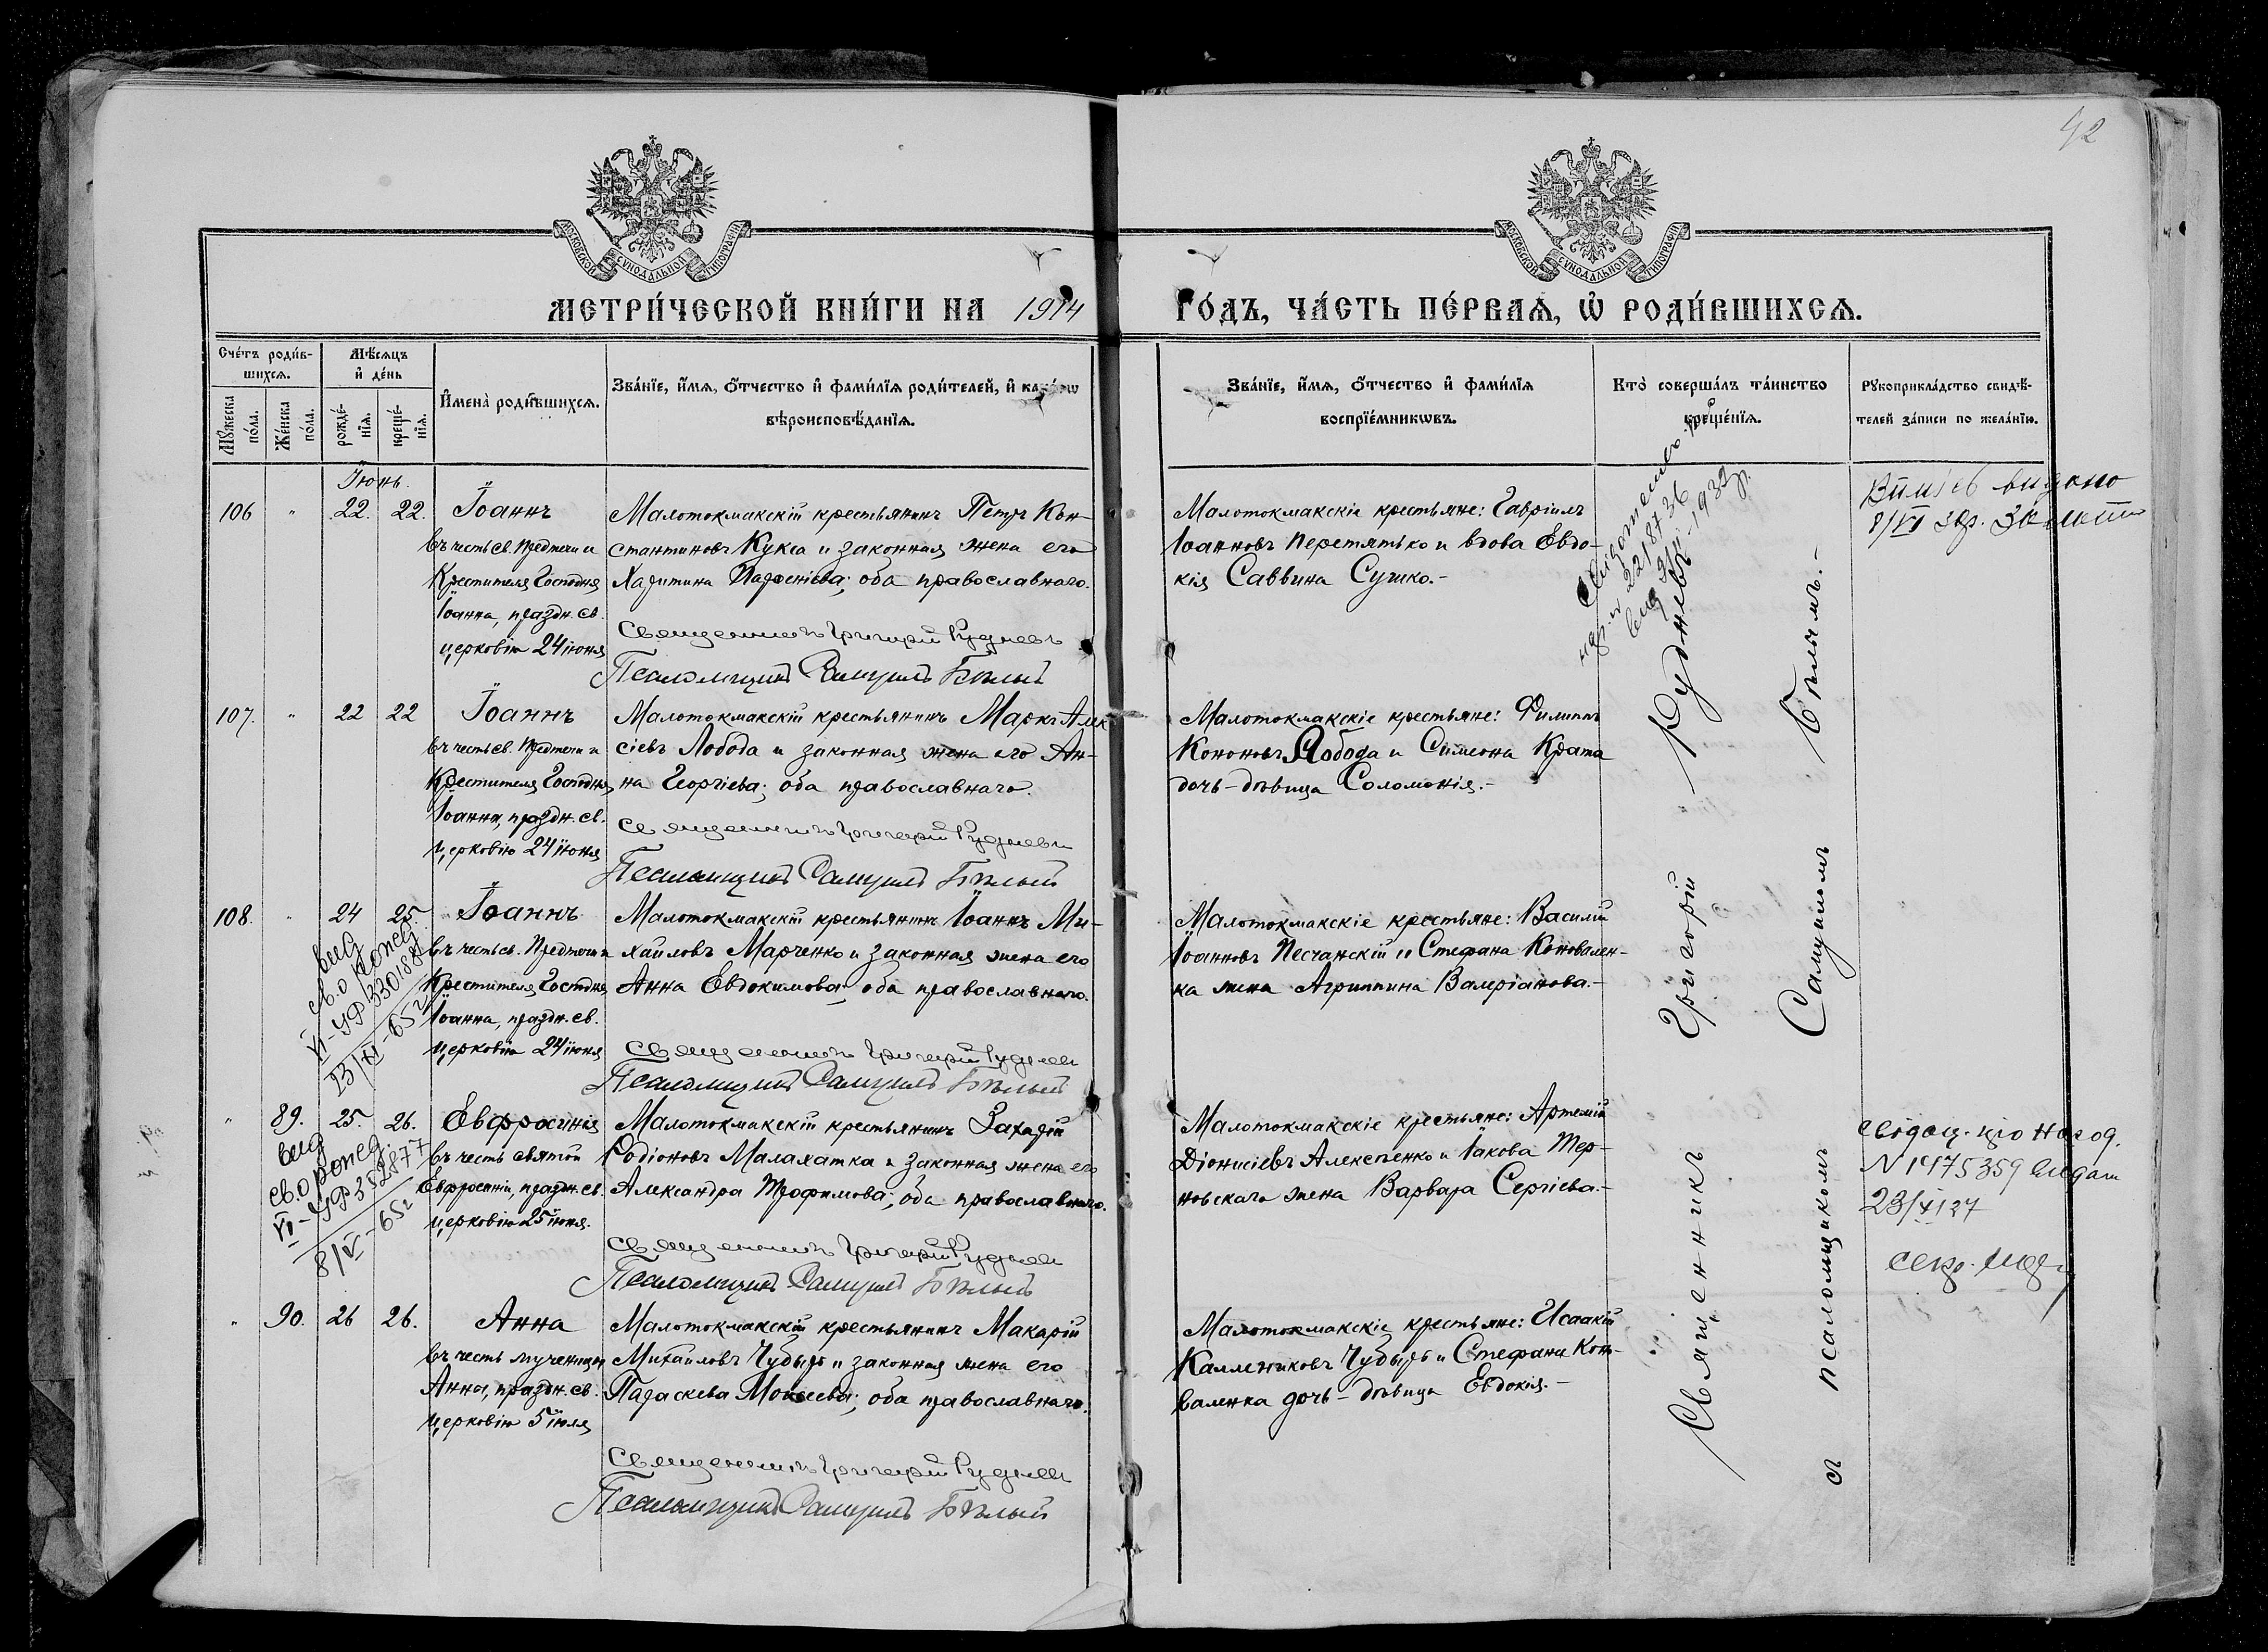 42
МОСКОВСКОЙ СѴНОДАЛЬНОЙ ТИПОГРАФІИ
МОСКОВСКОЙ СѴНОДАЛЬНОЙ ТИПОГРАФІИ
МЕТРИ́ЧЕСКОЙ КНИ́ГИ НА 1914 ГО́ДЪ, ЧА́СТЬ ПЕ́РВАѦ, Ѡ҆ РОДИ́ВШИХСѦ.
Сче́тъ роди́в-
шихсѧ.
Мꙋ́жеска по́ла.
Же́нска по́ла.
Мѣ́сѧцъ
и҆ де́нь
рожде́-
нїѧ.
креще́-
нїѧ.
И҆мена̀ роди́вшихсѧ.
Зва́нїе, и҆́мѧ, ѻ҆́тчество и҆ фами́лїѧ роди́телей, и҆ како́гѡ
вѣроисповѣ́данїѧ.
Зва́нїе, и҆́мѧ, ѻ҆́тчество и҆ фами́лїѧ
воспрїе́мникѡвъ.
Кто̀ соверша́лъ та́инство
креще́нїѧ.
Рꙋкоприкла́дство свидѣ́-
телей за́писи по жела́нїю.
Іюнь.
106 " 22. 22.
Іоаннъ
въ честь св. Предтечи и
Крестителя Господня
Іоанна, праздн. св.
церковію 24 іюня
Малотокмакскій крестьянинъ Петръ Кон-
стантиновъ Кукса и законная жена его
Харитина Парѳеніева; оба православнаго.
Священникъ Григорій Рудневъ
Псаломщикъ Самуилъ Бѣлый
Малотокмакскіе крестьяне: Гавріилъ
Іоанновъ Перетятько и вдова Евдо-
кія Саввина Сушко.-
№ 22/8736
1932 р.
видано
8/VI
107. " 22 22
Іоаннъ
въ честь св. Предтечи и
Крестителя Господня
Іоанна, праздн. св.
церковію 24 іюня
Малотокмакскій крестьянинъ Маркъ Алек-
сіевъ Лобода и законная жена его Ан-
на Георгіева; оба православнаго.
Священникъ Григорій Рудневъ
Псаломщикъ Самуилъ Бѣлый
Малотокмакскіе крестьяне: Филиппъ
Кононовъ Лобода и Симеона Крата
дочь-дѣвица Соломонія.-
108. " 24 25.
вид
св. о рожд.
VI-УР 330188
23/XI-65 г
Іоаннъ
въ честь св. Предтечи и
Крестителя Господня
Іоанна, праздн. св.
церковію 24 іюня
Малотокмакскій крестьянинъ Іоаннъ Ми-
хаиловъ Марченко и законная жена его
Анна Евдокимова; оба православнаго.
Священникъ Григорій Рудневъ
Псаломщикъ Самуилъ Бѣлый
Малотокмакскіе крестьяне: Василій
Іоанновъ Песчанскій и Стефана Коновален-
ка жена Агриппина Валеріанова.-
" 89. 25. 26.
вид
св. о рожд.
VI-УР 352877
8/V-65 г
Евфросинія
въ честь святой
Евфросиніи, праздн. св.
церковію 25 іюня.
Малотокмакскій крестьянинъ Захарій
Родіоновъ Малахатка и законная жена его
Александра Трофимова; оба православнаго.
Священникъ Григорій Рудневъ
Псаломщикъ Самуилъ Бѣлый
Малотокмакскіе крестьяне: Артемій
Діонисіевъ Алексѣенко и Іакова Тер-
новскаго жена Варвара Сергіева.-
N 1475359
23/XI 27
" 90. 26 26.
Анна
въ честь мученицы
Анны, праздн. св.
церковію 5 іюля
Малотокмакскій крестьянинъ Макарій
Михаиловъ Чубырь и законная жена его
Параскева Моисеева; оба православнаго.
Священникъ Григорій Рудневъ
Псаломщикъ Самуилъ Бѣлый
Малотокмакскіе крестьяне: Исаакій
Каллениковъ Чубырь и Стефана Коно-
валенка дочь-дѣвица Евдокія.-
Священникъ Григорій Рудневъ
съ псаломщикомъ Самуиломъ Бѣлымъ.-